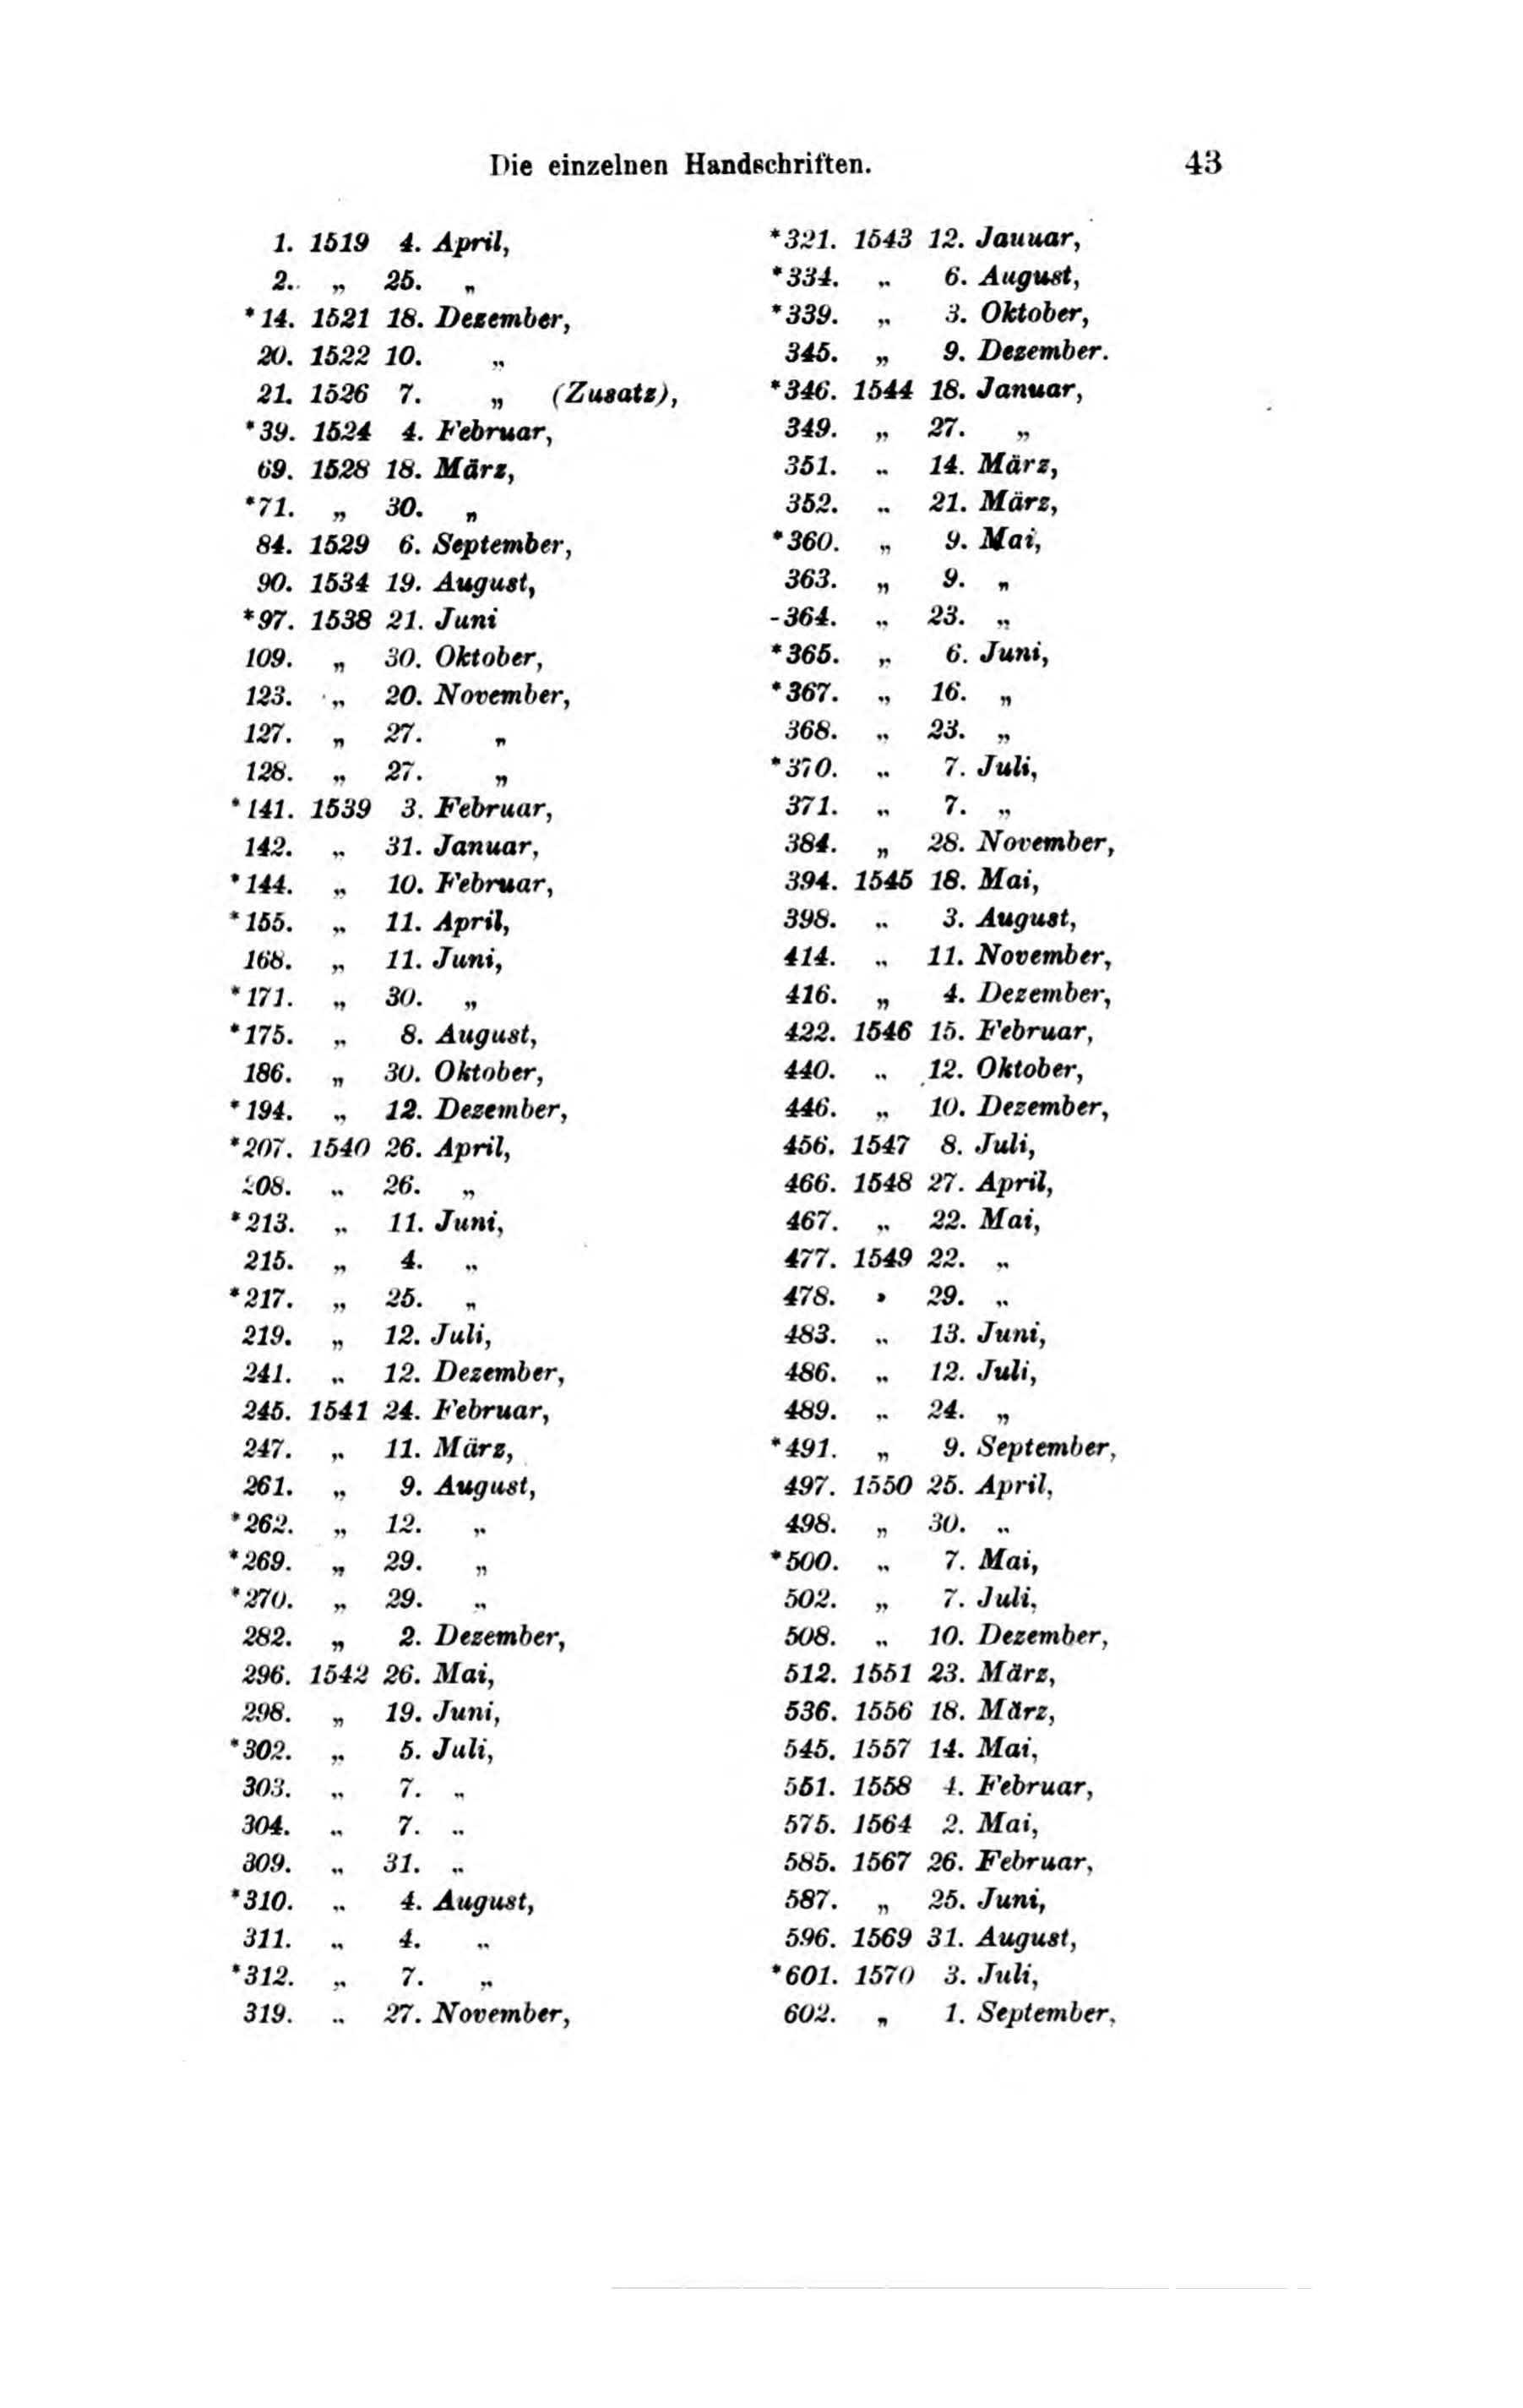 Die einzelnen Handschriften. 43
1. 1519 4. April,
2. „ 25. „
*14. 1521 18. Dezember,
20. 1522 10. „
21. 1526 7. „ (Zusatz),
*39. 1524 4. Februar,
69. 1528 18. März,
*71. „ 30. „
84. 1529 6. September,
90. 1534 19. August,
*97. 1538 21. Juni
109. „ 30. Oktober,
123. „ 20. November,
127. „ 27. „
128. „ 27. „
*141. 1539 3. Februar,
142. „ 31. Januar,
*144. „ 10. Februar,
*155. „ 11. April,
168. „ 11. Juni,
*171. „ 30. „
*175. „ 8. August,
186. „ 30. Oktober,
*194. „ 12. Dezember,
*207. 1540 26. April,
208. „ 26. „
*213. „ 11. Juni,
215. „ 4. „
*217. „ 25. „
219. „ 12. Juli,
241. „ 12. Dezember,
245. 1541 24. Februar,
247. „ 11. März,
261. „ 9. August,
*262. „ 12. „
*269. „ 29. „
*270. „ 29. „
282. „ 2. Dezember,
296. 1542 26. Mai,
298. „ 19. Juni,
*302. „ 5. Juli,
303. „ 7. „
304. „ 7. „
309. „ 31. „
*310. „ 4. August,
311. „ 4. „
*312. „ 7. „
319. „ 27. November,
*321. 1543 12. Jauuar,
*334. „ 6. August,
*339. „ 3. Oktober,
345. „ 9. Dezember.
*346. 1544 18. Januar,
349. „ 27. „
351. „ 14. März,
352. „ 21. März,
*360. „ 9. Mai,
363. „ 9. „
-364. „ 23. „
*365. „ 6. Juni,
*367. „ 16. „
368. „ 23. „
*370. „ 7. Juli,
371. „ 7. „
384. „ 28. November,
394. 1545 18. Mai,
398. „ 3. August,
414. „ 11. November,
416. „ 4. Dezember,
422. 1546 15. Februar,
440. „ 12. Oktober,
446. „ 10. Dezember,
456. 1547 8. Juli,
466. 1548 27. April,
467. „ 22. Mai,
477. 1549 22. „
478. „ 29. „
483. „ 13. Juni,
486. „ 12. Juli,
489. „ 24. „
*491. „ 9. September,
497. 1550 25. April,
498. „ 30. „
*500. „ 7. Mai,
502. „ 7. Juli,
508. „ 10. Dezember,
512. 1551 23. März,
536. 1556 18. März,
545. 1557 14. Mai,
551. 1558 4. Februar,
575. 1564 2. Mai,
585. 1567 26. Februar,
587. „ 25. Juni,
596. 1569 31. August,
*601. 1570 3. Juli,
602. „ 1. September,